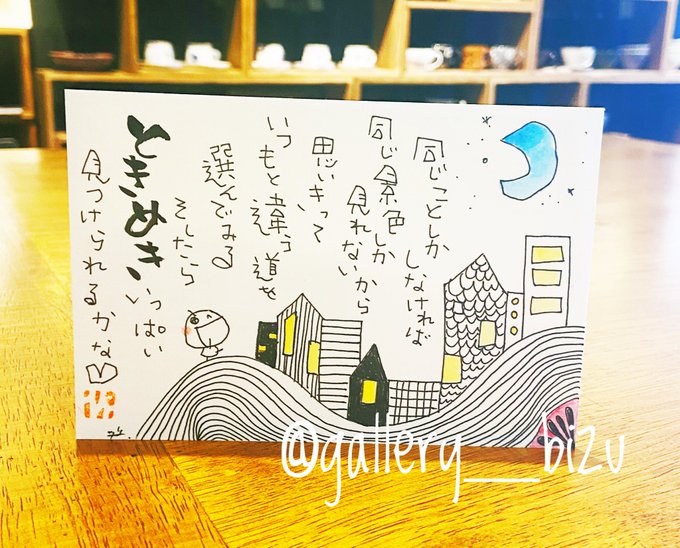 同じことしか
しなければ
同じ景色しか
見れないから
思いきって
いつもと違う道を
選んでみる
そしたら
ときめきいっぱい
見つけられるかな
@gallery___bizu